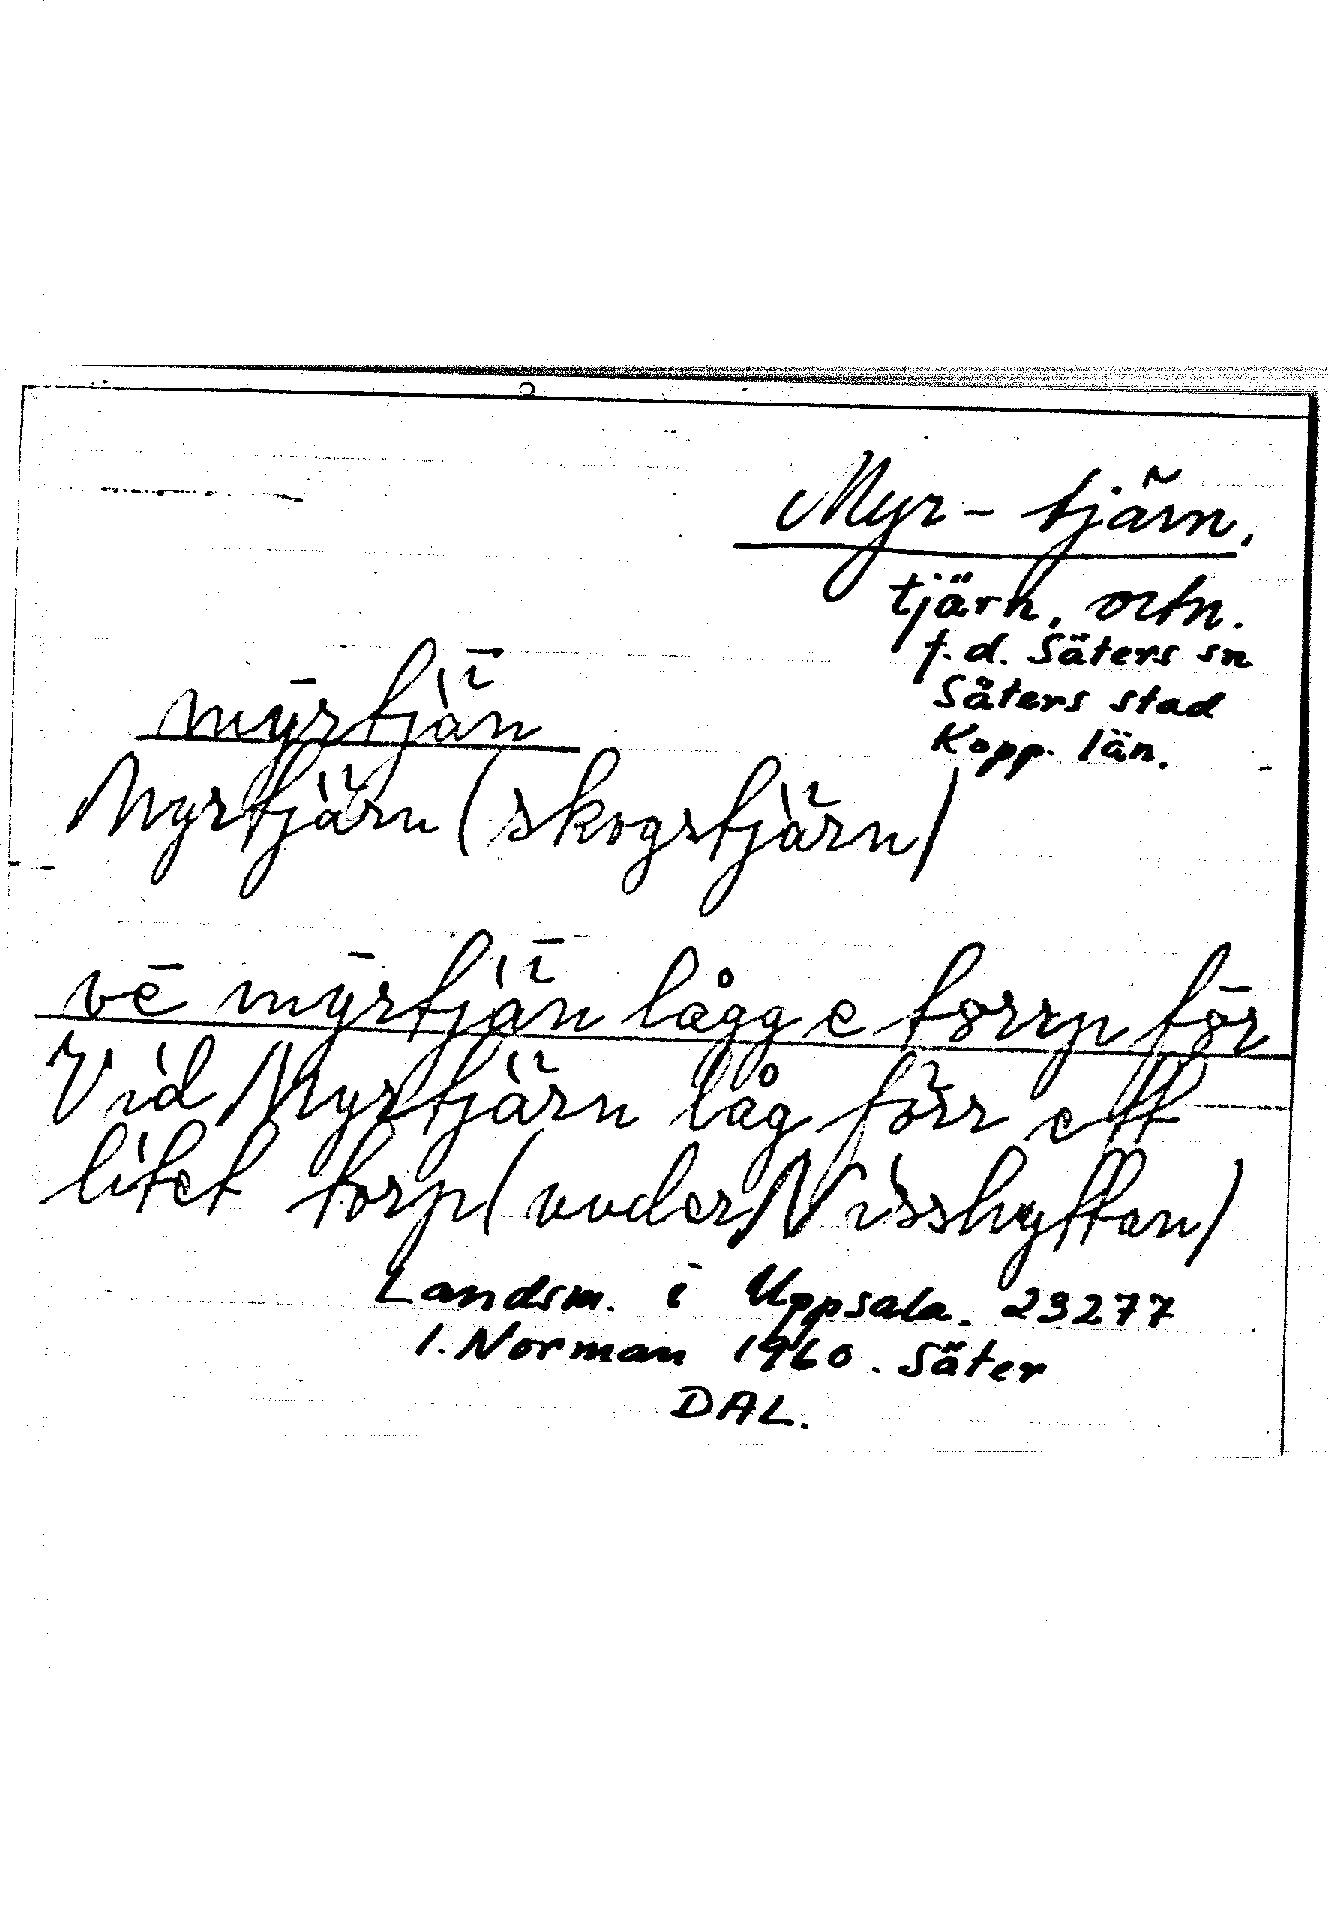 Myr-tjärn,
tjärn, o ctn.
f.d. Säters sn
Säters stad
Kopp. län.
mȳrtjǟn
Myrtjärn (skogstjärn)
vē mȳrtjǟn lågg e torrp för
Vid Myrtjärn låg förr ett
litet torp (under Nisshyttan)
Landsm. i Uppsala. 23277
I. Norman 1960. Säter
DAL.